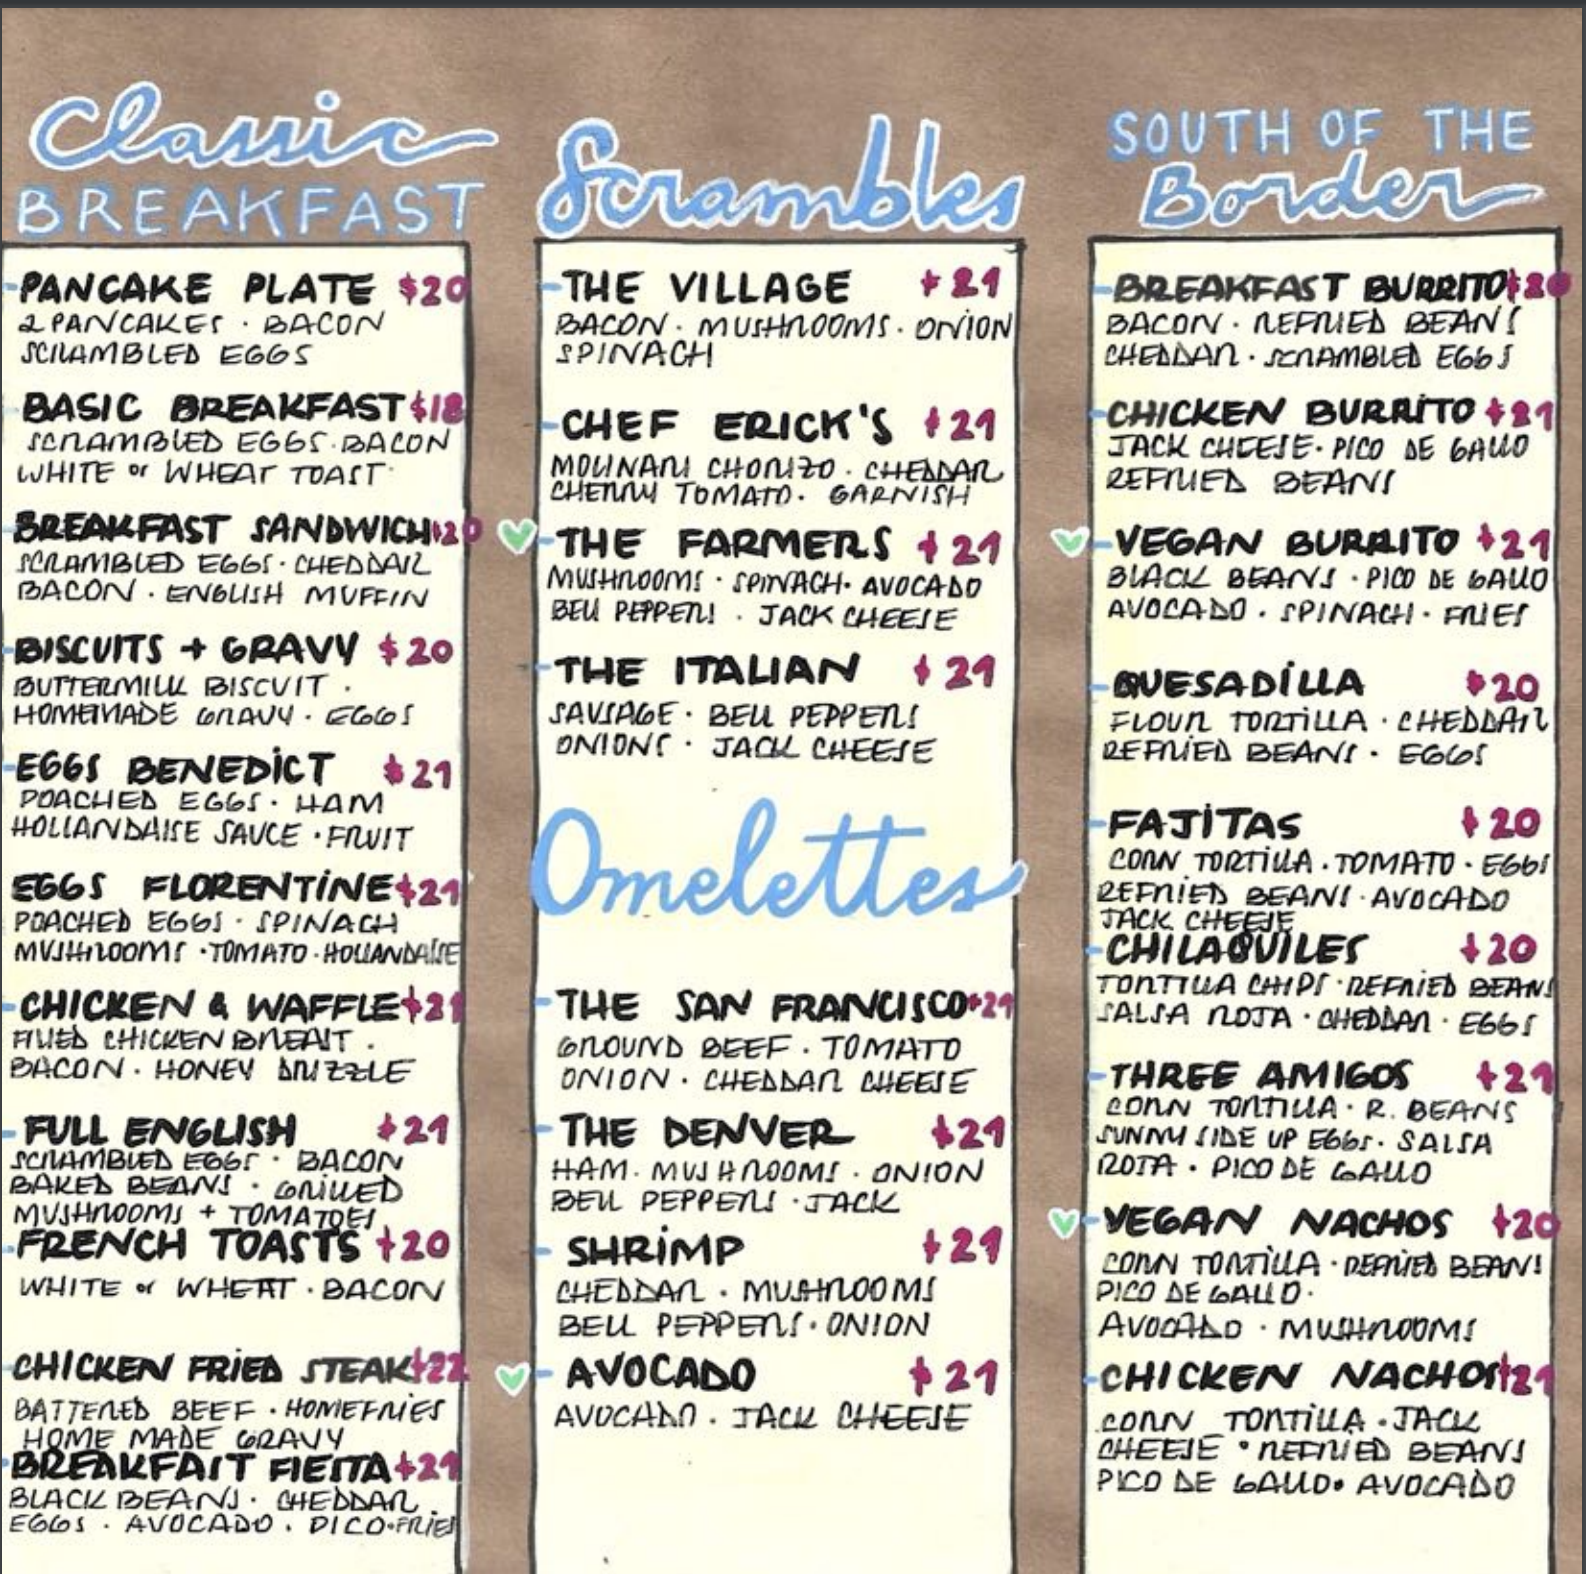 Classic
BREAKFAST
PANCAKE PLATE $20
2 PANCAKES · BACON
SCRAMBLED EGGS
BASIC BREAKFAST $18
SCRAMBLED EGGS · BACON
WHITE or WHEAT TOAST
BREAKFAST SANDWICH $20
SCRAMBLED EGGS · CHEDDAR
BACON · ENGLISH MUFFIN
BISCUITS + GRAVY $20
BUTTERMILK BISCUIT ·
HOMEMADE GRAVY · EGGS
EGGS BENEDICT $21
POACHED EGGS · HAM
HOLLANDAISE SAUCE · FRUIT
EGGS FLORENTINE $21
POACHED EGGS · SPINACH
MUSHROOMS · TOMATO · HOLLANDAISE
CHICKEN & WAFFLE $21
FRIED CHICKEN BREAST ·
BACON · HONEY DRIZZLE
FULL ENGLISH $21
SCRAMBLED EGGS · BACON
BAKED BEANS · GRILLED
MUSHROOMS + TOMATOES
FRENCH TOASTS $20
WHITE or WHEAT · BACON
CHICKEN FRIED STEAK $22
BATTERED BEEF · HOMEFRIES
HOME MADE GRAVY
BREAKFAST FIESTA $21
BLACK BEANS · CHEDDAR ·
EGGS · AVOCADO · PICO · FRIES
Scrambles
THE VILLAGE $21
BACON · MUSHROOMS · ONION
SPINACH
CHEF ERICK'S $21
MOLINARI CHORIZO · CHEDDAR
CHERRY TOMATO · GARNISH
THE FARMERS $21
MUSHROOMS · SPINACH · AVOCADO
BELL PEPPERS · JACK CHEESE
THE ITALIAN $21
SAUSAGE · BELL PEPPERS
ONIONS · JACK CHEESE
Omelettes
THE SAN FRANCISCO $21
GROUND BEEF · TOMATO
ONION · CHEDDAR CHEESE
THE DENVER $21
HAM · MUSHROOMS · ONION
BELL PEPPERS · JACK
SHRIMP $21
CHEDDAR · MUSHROOMS
BELL PEPPERS · ONION
AVOCADO $21
AVOCADO · JACK CHEESE
SOUTH OF THE
Border
BREAKFAST BURRITO $20
BACON · REFRIED BEANS
CHEDDAR · SCRAMBLED EGGS
CHICKEN BURRITO $21
JACK CHEESE · PICO DE GALLO
REFRIED BEANS
VEGAN BURRITO $21
BLACK BEANS · PICO DE GALLO
AVOCADO · SPINACH · FRIES
QUESADILLA $20
FLOUR TORTILLA · CHEDDAR
REFRIED BEANS · EGGS
FAJITAS $20
CORN TORTILLA · TOMATO · EGGS
REFRIED BEANS · AVOCADO
JACK CHEESE
CHILAQUILES $20
TORTILLA CHIPS · REFRIED BEANS
SALSA ROJA · CHEDDAR · EGGS
THREE AMIGOS $21
CORN TORTILLA · R. BEANS
SUNNY SIDE UP EGGS · SALSA
ROJA · PICO DE GALLO
VEGAN NACHOS $20
CORN TORTILLA · REFRIED BEANS
PICO DE GALLO ·
AVOCADO · MUSHROOMS
CHICKEN NACHOS $21
CORN TORTILLA · JACK
CHEESE · REFRIED BEANS
PICO DE GALLO · AVOCADO